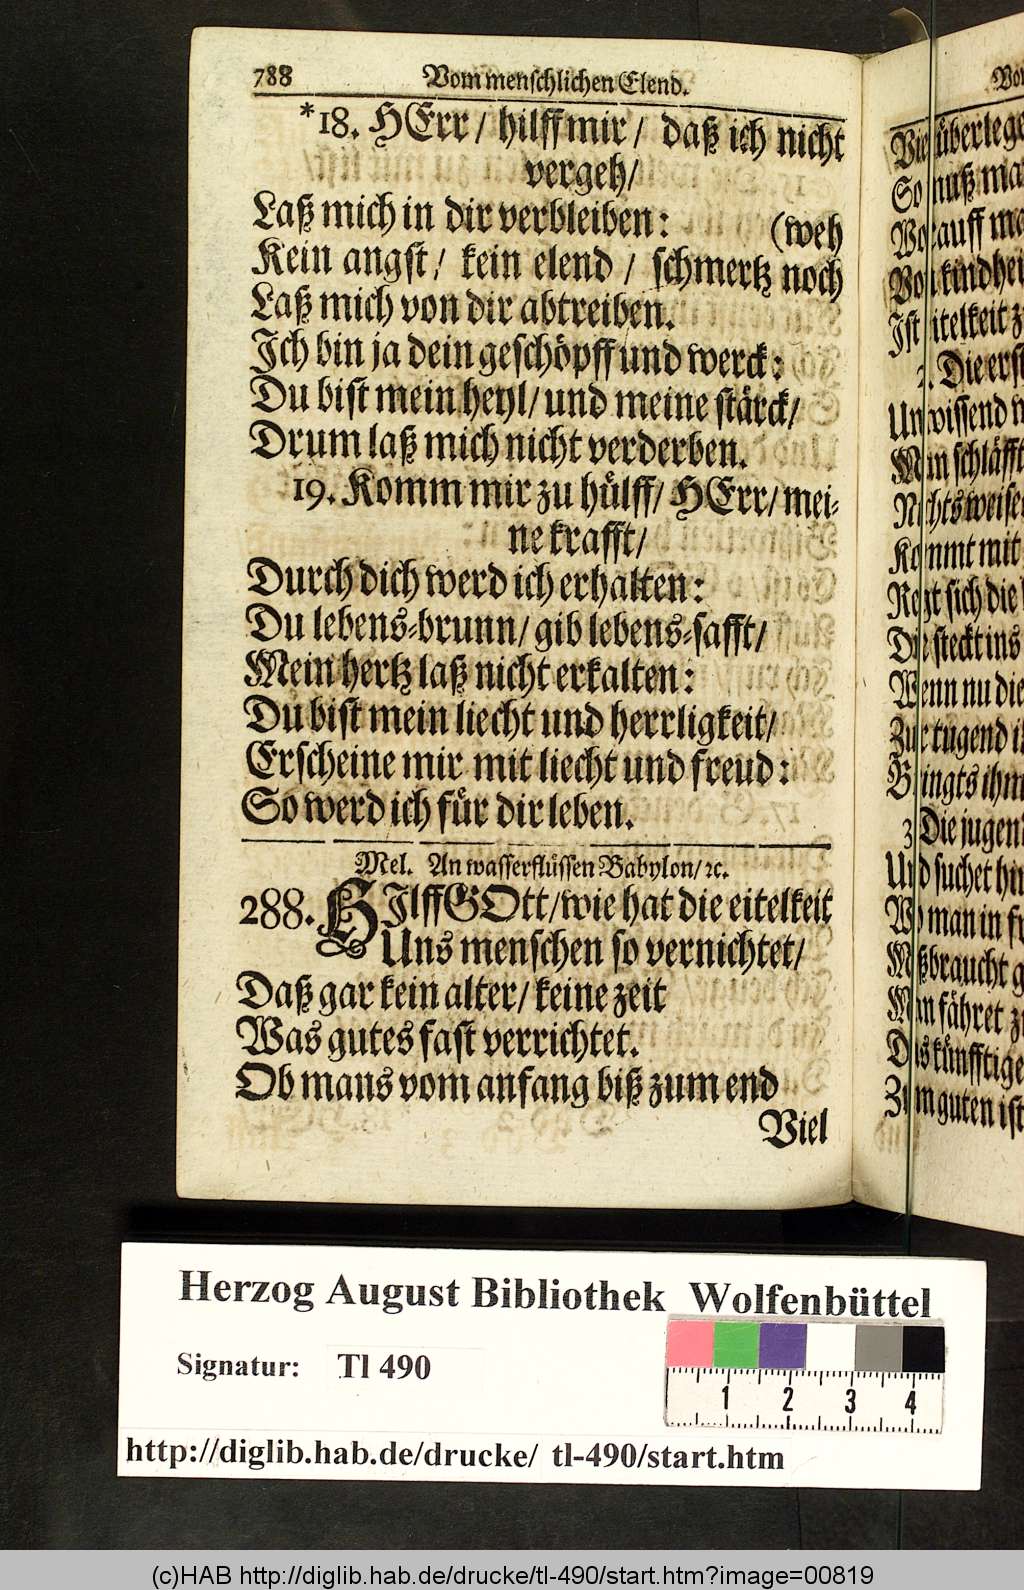 788 Vom menschlichen Elend.
*18. HErr / hilff mir / daß ich nicht
vergeh /
Laß mich in dir verbleiben: (weh
Kein angst / kein elend / schmertz noch
Laß mich von dir abtreiben.
Ich bin ja dein geschöpff und werck:
Du bist mein heyl / und meine stärck /
Drum laß mich nicht verderben.
19. Komm mir zu hülff / HErr / mei-
ne krafft /
Durch dich werd ich erhalten:
Du lebens-brunn / gib lebens-safft /
Mein hertz laß nicht erkalten:
Du bist mein liecht und herrligkeit /
Erscheine mir mit liecht und freud:
So werd ich für dir leben.
Mel. An wasserflüssen Babylon / ꝛc.
288. HIlff GOtt / wie hat die eitelkeit
Uns menschen so vernichtet /
Daß gar kein alter / keine zeit
Was gutes fast verrichtet.
Ob mans vom anfang biß zum end
Viel
überlege
So muß
auff
kindhei
Ist eitelkeit
2. Die erst
Unwissend
Man schläfft
Nichts weise
Kommt mit
Regt sich die
Die steckt ins
Wenn nu die
Zur tugend
Bringts ihm
3. Die jugen
Und suchet
Wo man in
Mißbraucht
Man fähret
Das künfftige
Zum guten ist
Herzog August Bibliothek Wolfenbüttel
Signatur: Tl 490
1 2 3 4
http://diglib.hab.de/drucke/ tl-490/start.htm
(c)HAB http://diglib.hab.de/drucke/tl-490/start.htm?image=00819